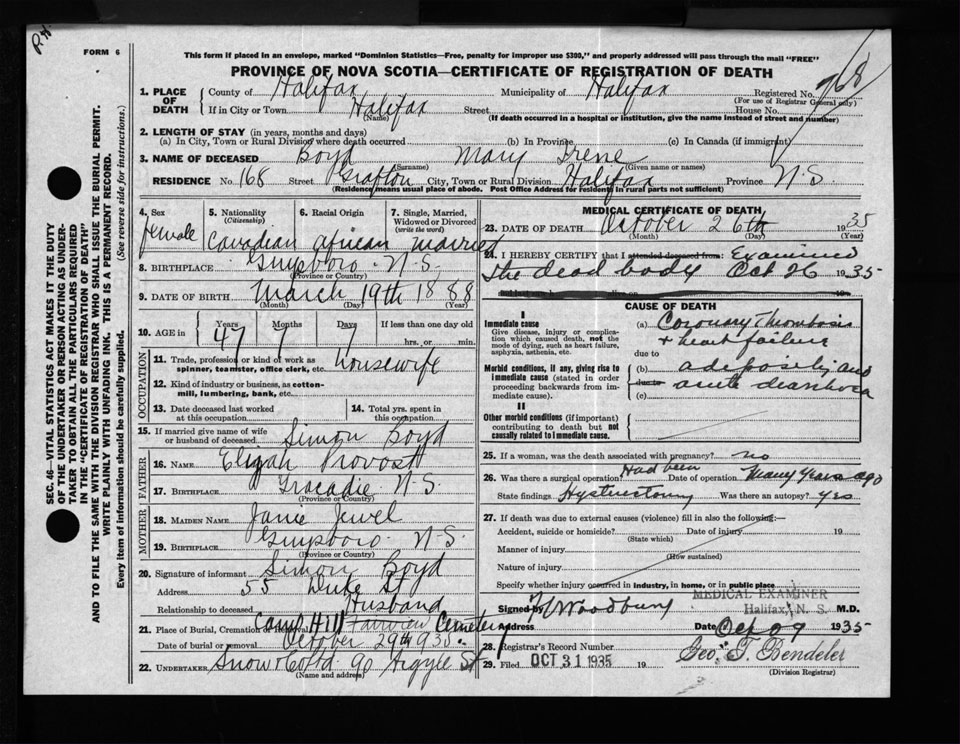 P.H.
FORM 6
This form if placed in an envelope, marked "Dominion Statistics—Free, penalty for improper use $300," and properly addressed will pass through the mail "FREE"
PROVINCE OF NOVA SCOTIA—CERTIFICATE OF REGISTRATION OF DEATH
1. PLACE OF DEATH County of Halifax Municipality of Halifax Registered No. 768
(For use of Registrar General only)
If in City or Town Halifax Street House No.
(Name) (If death occurred in a hospital or institution, give the name instead of street and number)
2. LENGTH OF STAY (in years, months and days)
(a) In City, Town or Rural Division where death occurred (b) In Province (c) In Canada (if immigrant)
3. NAME OF DECEASED Boyd Mary Irene
(Surname) (Given name or names)
RESIDENCE No 168 Street Grafton City, Town or Rural Division Halifax Province N.S
(Residence means usual place of abode. Post Office Address for residents in rural parts not sufficient)
4. Sex 5. Nationality (Citizenship) 6. Racial Origin 7. Single, Married, Widowed or Divorced (write the word)
female Canadian African married
8. BIRTHPLACE Guysboro. N.S.
(Province or Country)
9. DATE OF BIRTH March 19th 1888
(Month) (Day) (Year)
10. AGE in Years Months Days If less than one day old
47 7 hrs. or min.
OCCUPATION
11. Trade, profession or kind of work as spinner, teamster, office clerk, etc. housewife
12. Kind of industry or business, as cotton-mill, lumbering, bank, etc.
13. Date deceased last worked at this occupation 14. Total yrs. spent in this occupation
15. If married give name of wife or husband of deceased Simon Boyd
FATHER
16. NAME Elijah Provost
17. BIRTHPLACE Tracadie N.S.
(Province or Country)
MOTHER
18. MAIDEN NAME Janie Jewel
19. BIRTHPLACE Guysboro. N.S
(Province or Country)
20. Signature of informant Simon Boyd
Address 55 Duke St
Relationship to deceased Husband
21. Place of Burial, Cremation or Removal Camp Hill Fairview Cemetery
Date of burial or removal October 29th 1935.
22. UNDERTAKER Snow & Co Ltd. 90 Argyle St
(Name and address)
MEDICAL CERTIFICATE OF DEATH
23. DATE OF DEATH October 26th 1935
(Month) (Day) (Year)
24. I HEREBY CERTIFY that I attended deceased from: Examined
The dead body Oct 26 1935
CAUSE OF DEATH
I
Immediate cause
Give disease, injury or complication which caused death, not the mode of dying, such as heart failure, asphyxia, asthenia, etc.
(a) Coronary Thrombosis
& heart failure
due to
Morbid conditions, if any, giving rise to immediate cause (stated in order proceeding backwards from immediate cause).
(b) adiposity and
due to acute diarrhoea
(c)
II
Other morbid conditions (if important) contributing to death but not causally related to immediate cause.
25. If a woman, was the death associated with pregnancy? no
26. Was there a surgical operation? Had been Date of operation Many years ago
State findings Hysterectomy Was there an autopsy? Yes
27. If death was due to external causes (violence) fill in also the following:—
Accident, suicide or homicide? Date of injury 19
(State which)
Manner of injury
(How sustained)
Nature of injury
Specify whether injury occurred in industry, in home, or in public place
MEDICAL EXAMINER
Signed by Woodbury Halifax, N. S. M.D.
Address Date Oct 29 1935
28. Registrar's Record Number
29. Filed OCT 31 1935 19 Geo. T. Bendeler
(Division Registrar)
SEC. 46—VITAL STATISTICS ACT MAKES IT THE DUTY OF THE UNDERTAKER OR PERSON ACTING AS UNDERTAKER TO OBTAIN ALL THE PARTICULARS REQUIRED IN THE "CERTIFICATE OF REGISTRATION OF DEATH" AND TO FILE THE SAME WITH THE DIVISION REGISTRAR WHO SHALL ISSUE THE BURIAL PERMIT.
WRITE PLAINLY WITH UNFADING INK. THIS IS A PERMANENT RECORD.
Every item of information should be carefully supplied. (See reverse side for instructions.)